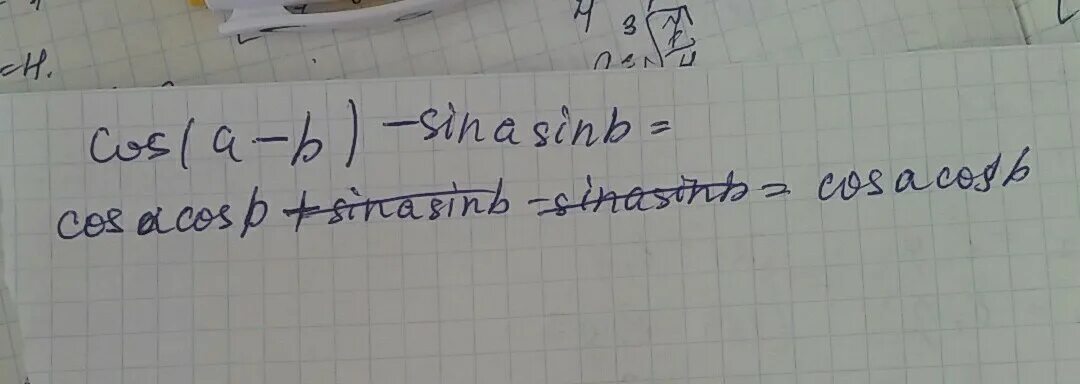 =H.
3√
cos(a-b) -sinasinb=
cosacosb +sinasinb -sinasinb = cosacosb